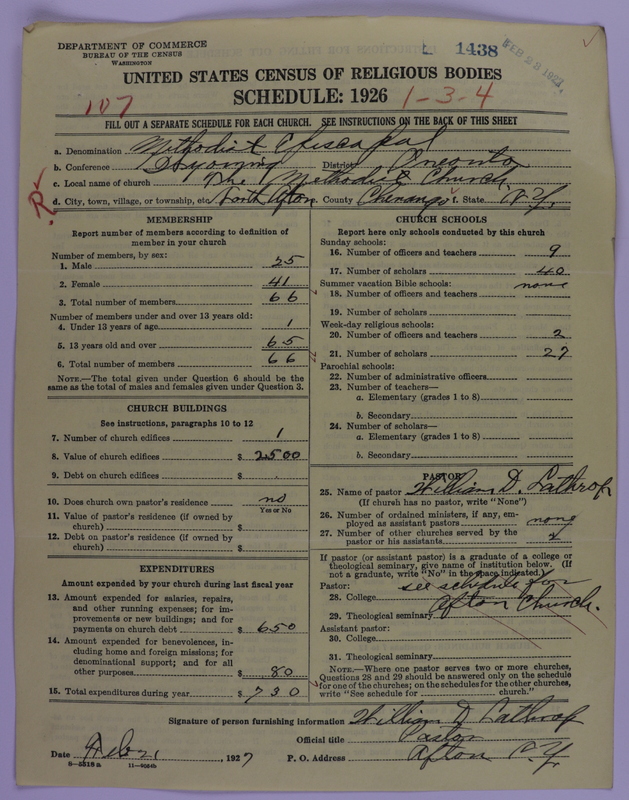 DEPARTMENT OF COMMERCE
BUREAU OF THE CENSUS
WASHINGTON
L 1438
FEB 23 1927
UNITED STATES CENSUS OF RELIGIOUS BODIES
SCHEDULE: 1926
107
1-3-4
FILL OUT A SEPARATE SCHEDULE FOR EACH CHURCH. SEE INSTRUCTIONS ON THE BACK OF THIS SHEET
a. Denomination Methodist Episcopal
b. Conference Wyoming District Oneonta
c. Local name of church The Methodist Church
R
d. City, town, village, or township, etc. North Afton e. County Chenango f. State N.Y.
MEMBERSHIP
Report number of members according to definition of
member in your church
Number of members, by sex:
1. Male 25
2. Female 41
3. Total number of members 66
Number of members under and over 13 years old:
4. Under 13 years of age 1
5. 13 years old and over 65
6. Total number of members 66
NOTE.—The total given under Question 6 should be the
same as the total of males and females given under Question 3.
CHURCH BUILDINGS
See instructions, paragraphs 10 to 12
7. Number of church edifices 1
8. Value of church edifices $ 2500
9. Debt on church edifices $
10. Does church own pastor's residence no
Yes or No
11. Value of pastor's residence (if owned by
church) $
12. Debt on pastor's residence (if owned by
church) $
EXPENDITURES
Amount expended by your church during last fiscal year
13. Amount expended for salaries, repairs,
and other running expenses; for im-
provements or new buildings; and for
payments on church debt $ 650
14. Amount expended for benevolences, in-
cluding home and foreign missions; for
denominational support; and for all
other purposes $ 80
15. Total expenditures during year $ 730
CHURCH SCHOOLS
Report here only schools conducted by this church
Sunday schools:
16. Number of officers and teachers 9
17. Number of scholars 40
Summer vacation Bible schools: none
18. Number of officers and teachers
19. Number of scholars
Week-day religious schools:
20. Number of officers and teachers 2
21. Number of scholars 27
Parochial schools:
22. Number of administrative officers
23. Number of teachers—
a. Elementary (grades 1 to 8)
b. Secondary
24. Number of scholars—
a. Elementary (grades 1 to 8)
b. Secondary
PASTOR
25. Name of pastor William D. Lathrop
(If church has no pastor, write "None")
26. Number of ordained ministers, if any, em-
ployed as assistant pastors none
27. Number of other churches served by the
pastor or his assistants 2
If pastor (or assistant pastor) is a graduate of a college or
theological seminary, give name of institution below. (If
not a graduate, write "No" in the space indicated.)
Pastor: see schedule for
28. College Afton Church.
29. Theological seminary
Assistant pastor:
30. College
31. Theological seminary
NOTE.—Where one pastor serves two or more churches,
Questions 28 and 29 should be answered only on the schedule
for one of the churches; on the schedules for the other churches,
write "See schedule for church."
Signature of person furnishing information William D Lathrop
Official title Pastor
Date Feb 21 1927 P. O. Address Afton N.Y.
8-5518a 11-9064b